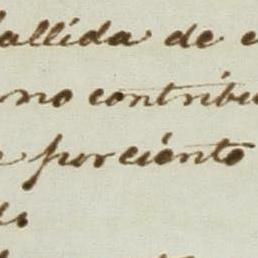 fallida de e
no contribu
e porciento
do